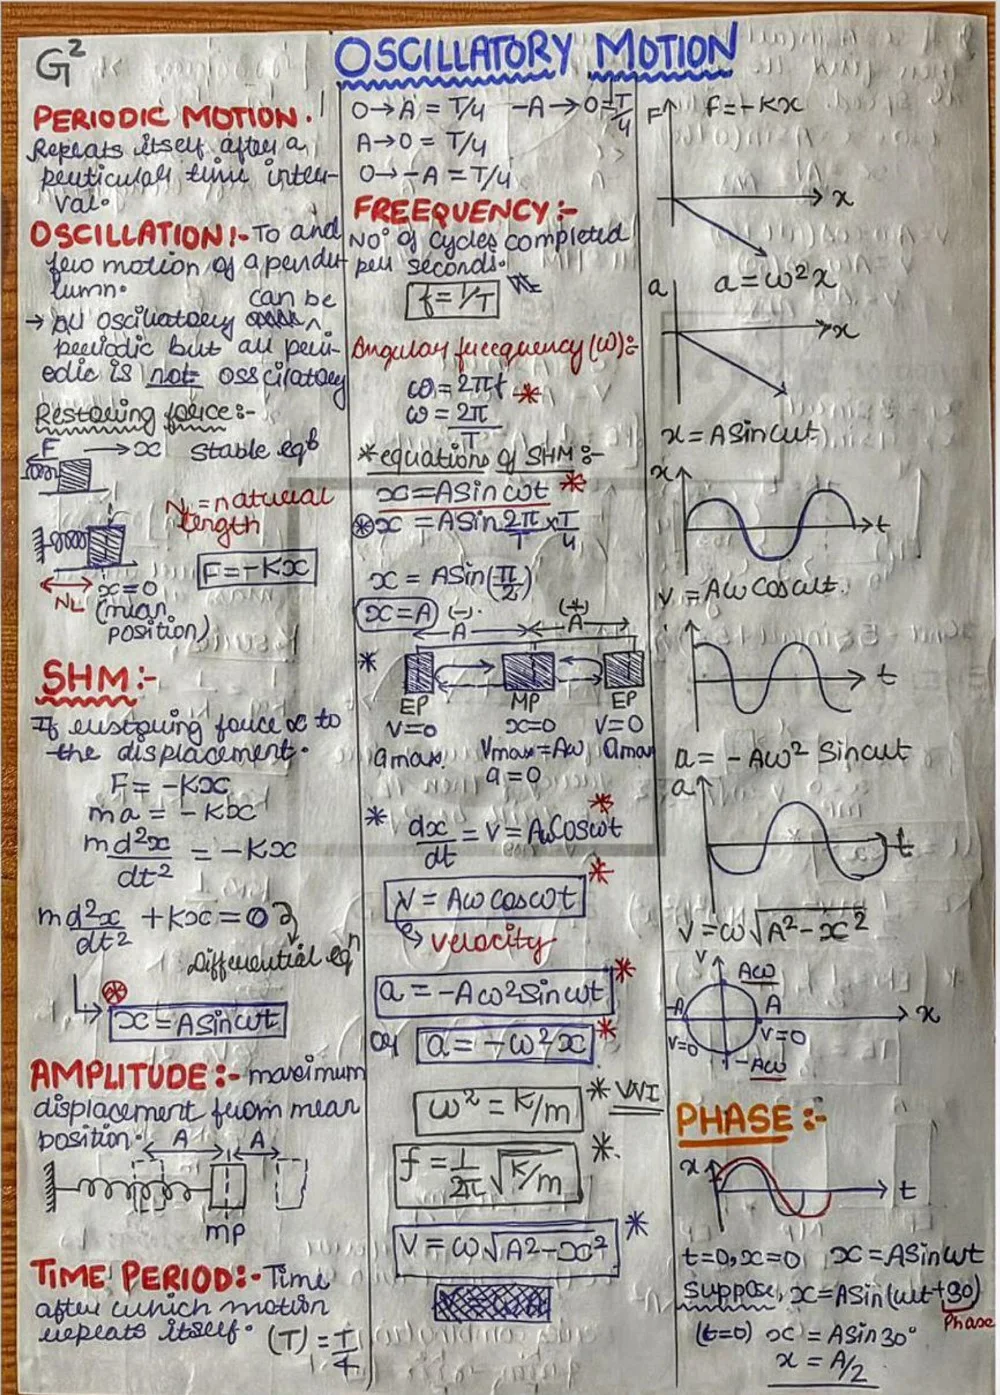 G²
OSCILLATORY MOTION
PERIODIC MOTION.
Repeats itself after a
perticular time inter-
val.
OSCILLATION:- To and
fro motion of a pendu
lumn.
can be
→ All oscillatory
periodic but all peri-
odic is not osscilatory
Restoring force:-
F → x stable eqᵇ
NL = natural
length
F = -Kx
NL x=0
(mean
position)
SHM:-
If restoring force ∝ to
the displacement.
F = -Kx
ma = -Kx
md²x/dt² = -Kx
md²x/dt² + Kx = 0
Differential eqⁿ
x = ASinωt
AMPLITUDE:- maximum
displacement from mean
position.
A A
MP
TIME PERIOD:- Time
after which motion
repeats itself. (T) = T/4
0→A = T/4 -A→0 = T/4
A→0 = T/4
0→-A = T/4
FREEQUENCY:-
N° of cycles completed
per seconds.
f = 1/T
Angular freequency (ω):-
ω = 2πf *
ω = 2π/T
*equations of SHM:-
x = ASin ωt *
* x = ASin 2π/T × T/4
x = ASin(π/2)
x = A (-) (+)
A A
* EP MP EP
V=0 x=0 V=0
amax Vmax=Aω amax
a=0
* dx/dt = v = AωCosωt *
V = Aω cosωt *
velocity
a = -Aω²Sinωt *
or a = -ω²x *
ω² = K/m * VVI
f = 1/2π √K/m *
V = ω√A²-x² *
F f = -Kx
x
a a = ω²x
x
x = ASinωt
x t
v = Aω Cosωt
t
a = -Aω² Sinωt
a t
V = ω√A²-x²
V Aω
-A A x
V=0 V=0
-Aω
PHASE:-
x t
t=0, x=0 x = ASinωt
suppose, x = ASin(ωt+30)
Phase
(t=0) x = ASin30°
x = A/2